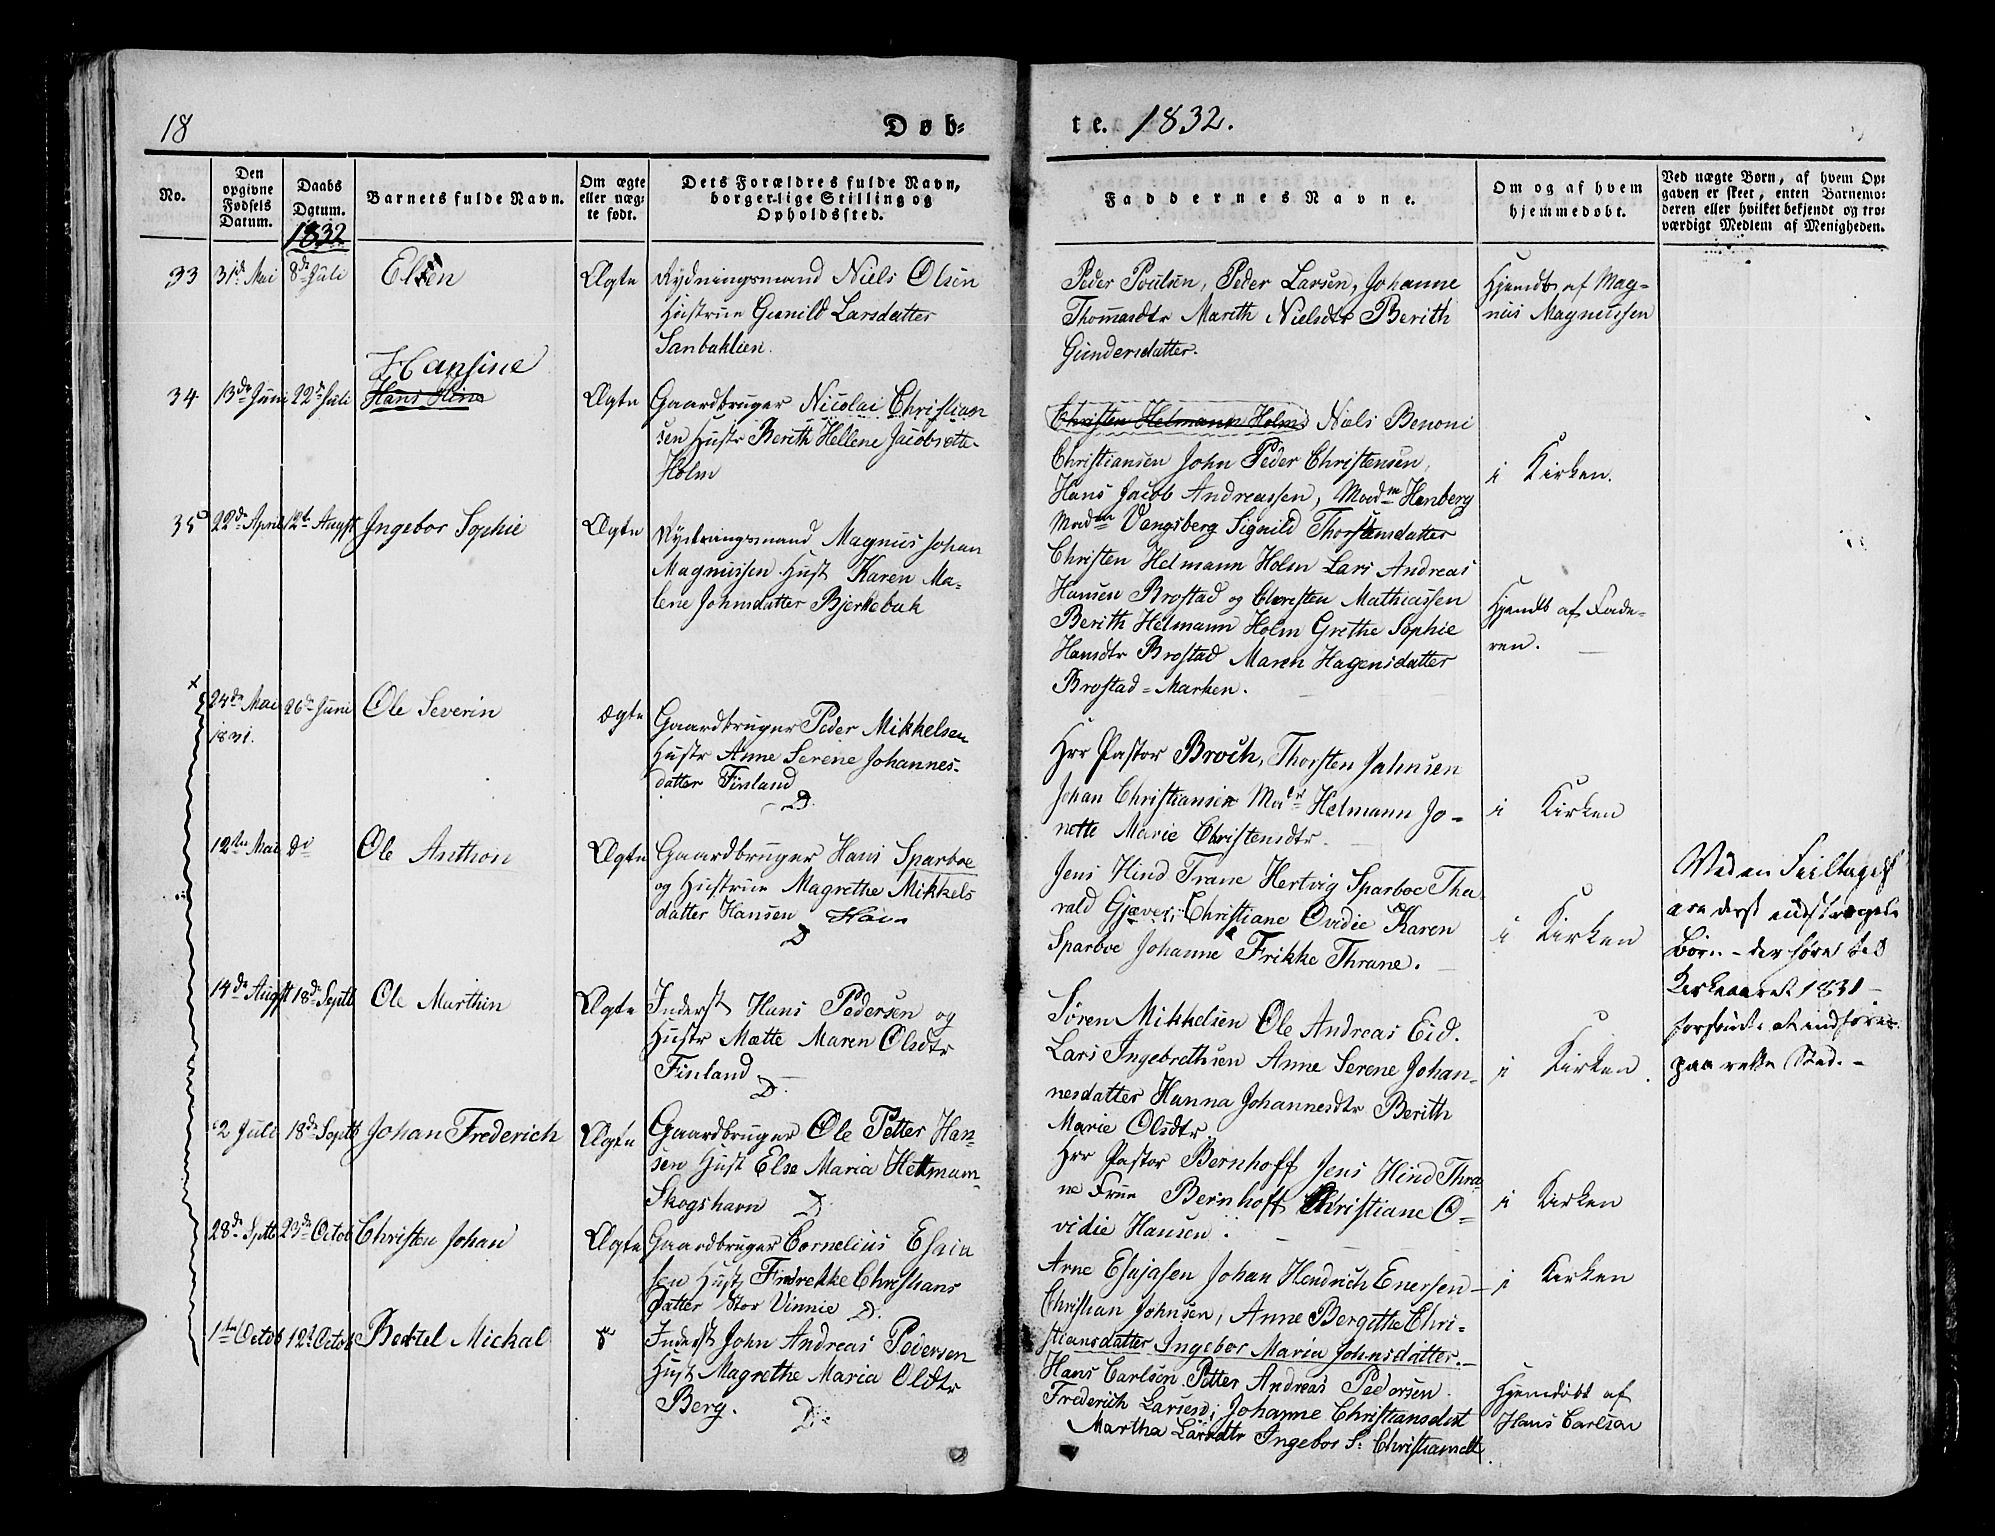 18
Døb-
te. 1832.
No.
Den opgivne Fødsels Datum.
Daabs Datum.
1832
Barnets fulde Navn.
Om ægte eller uægte født.
Dets Forældres fulde Navn, borgerlige Stilling og Opholdssted.
Faddernes Navne.
Om og af hvem hjemmedøbt.
Ved uægte Børn, af hvem Opgaven er skeet, enten Barnemoderen eller hvilket bekjendt og troværdigt Medlem af Menigheden.
33
31de Mai
8de Juli
Elsen
Ægte
Rydningsmand Niels Olsen
Hustrue Gunild Larsdatter
Sanbaklien.
Peder Poulsen, Peder Larsen, Johanne
Thomasdtr Marith Nielsdtr Berith
Gundersdatter.
Hjemdb af Mag-
nus Magnussen
34
13de Juni
22de Juli
Hansine
Hans Hine
Ægte
Gaardbruger Nicolai Christian
sen Hustr Berith Hellene Jacobsdtt.
Holm
Christen Helmann Holm Niels Benoni
Christiansen John Peder Christensen,
Hans Jacob Andreassen, Madm Hanberg
Madm Vangsberg Signild Thorstensdatter
i Kirken.
35
22de April
12te Augst
Ingebor Sophie
Ægte
Rydningsmand Magnus Johan
Magnussen Hust Karen Ma-
lene Johnsdatter Bjerkebak
Christen Helmann Holm Lars Andreas
Hansen Brostad og Christen Mathiassen
Berith Helmann Holm Grethe Sophie
Hansdtr Brostad Maren Hagensdatter
Brostad=Marken.
Hjemdb af Fade-
ren.
24de Mai
1831.
26de Juni
Ole Severin
ægte
Gaardbruger Peder Mikkelsen
Hustr Anne Serene Johannes-
datter Finland
D.
Hrr Pastor Broch, Thorsten Johnsen
Johan Christiansen Mad Helmann Jo-
nette Marie Christensdtr.
i Kirken
12te Mai
do
Ole Anthon
Ægte
Gaardbruger Hans Sparboe
og Hustrue Magrethe Mikkels
datter Hansen
D
Jens Hind Trane Hertvig Sparboe Tha
rald Gjæver, Christiane Ovidie Karen
Sparboe Johanne Frikke Thrane.
i Kirken
Ved en Feiltagelse
ere derst indstregede
Børn - der høre til
Kirkeaaret 1831 -
forsømte at indføres
paa rette Sted. -
14de Augst
18de Septb
Ole Marthin
Ægte
Inderst Hans Pedersen og
Hustr Mætte Maren Olsdtr
Finland
D.
Søren Mikkelsen Ole Andreas Eid.
Lars Ingebrethsen Anne Serene Johan-
nesdatter Hanna Johannesdtr Berith
Marie Olsdtr
i Kirken
2 Juli
18de Septb
Johan Frederich
Ægte
Gaardbruger Ole Petter Han-
sen Hust Else Maria Helmann
Skogshavn
D
Hrr Pastor Bernhoff Jens Hind Thra-
ne Frue Bernhoff Christiane O-
vidie Hansen
i Kirken
28de Septb
23de Octob
Christen Johan
Ægte
Gaardbruger Cornelius Esaia
sen Hust Fredrekke Christians
datter Stor Vinnie
D.
Arne Esajasen Johan Hendrich Enersen
Christian Johnsen, Anne Bergethe Chri-
stiansdatter Ingebor Maria Johnsdatter.
i Kirken
1te Octob
12te Octob
Bertel Mickal
Inderst John Andreas Pedersen
Hust Magrethe Maria Olsdtr
Berg.
D
Hans Carlsen Petter Andreas Pedersen
Frederich Larsen, Johanne Christiansdat
Martha Larsdtr Ingebor S. Christiansdt.
Hjemdøbt af
Hans Carlsen